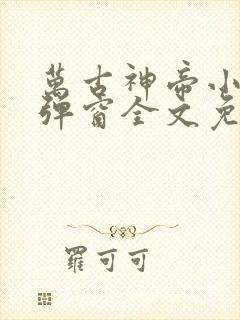 萬古神帝小
彈窗全文免
羅可可